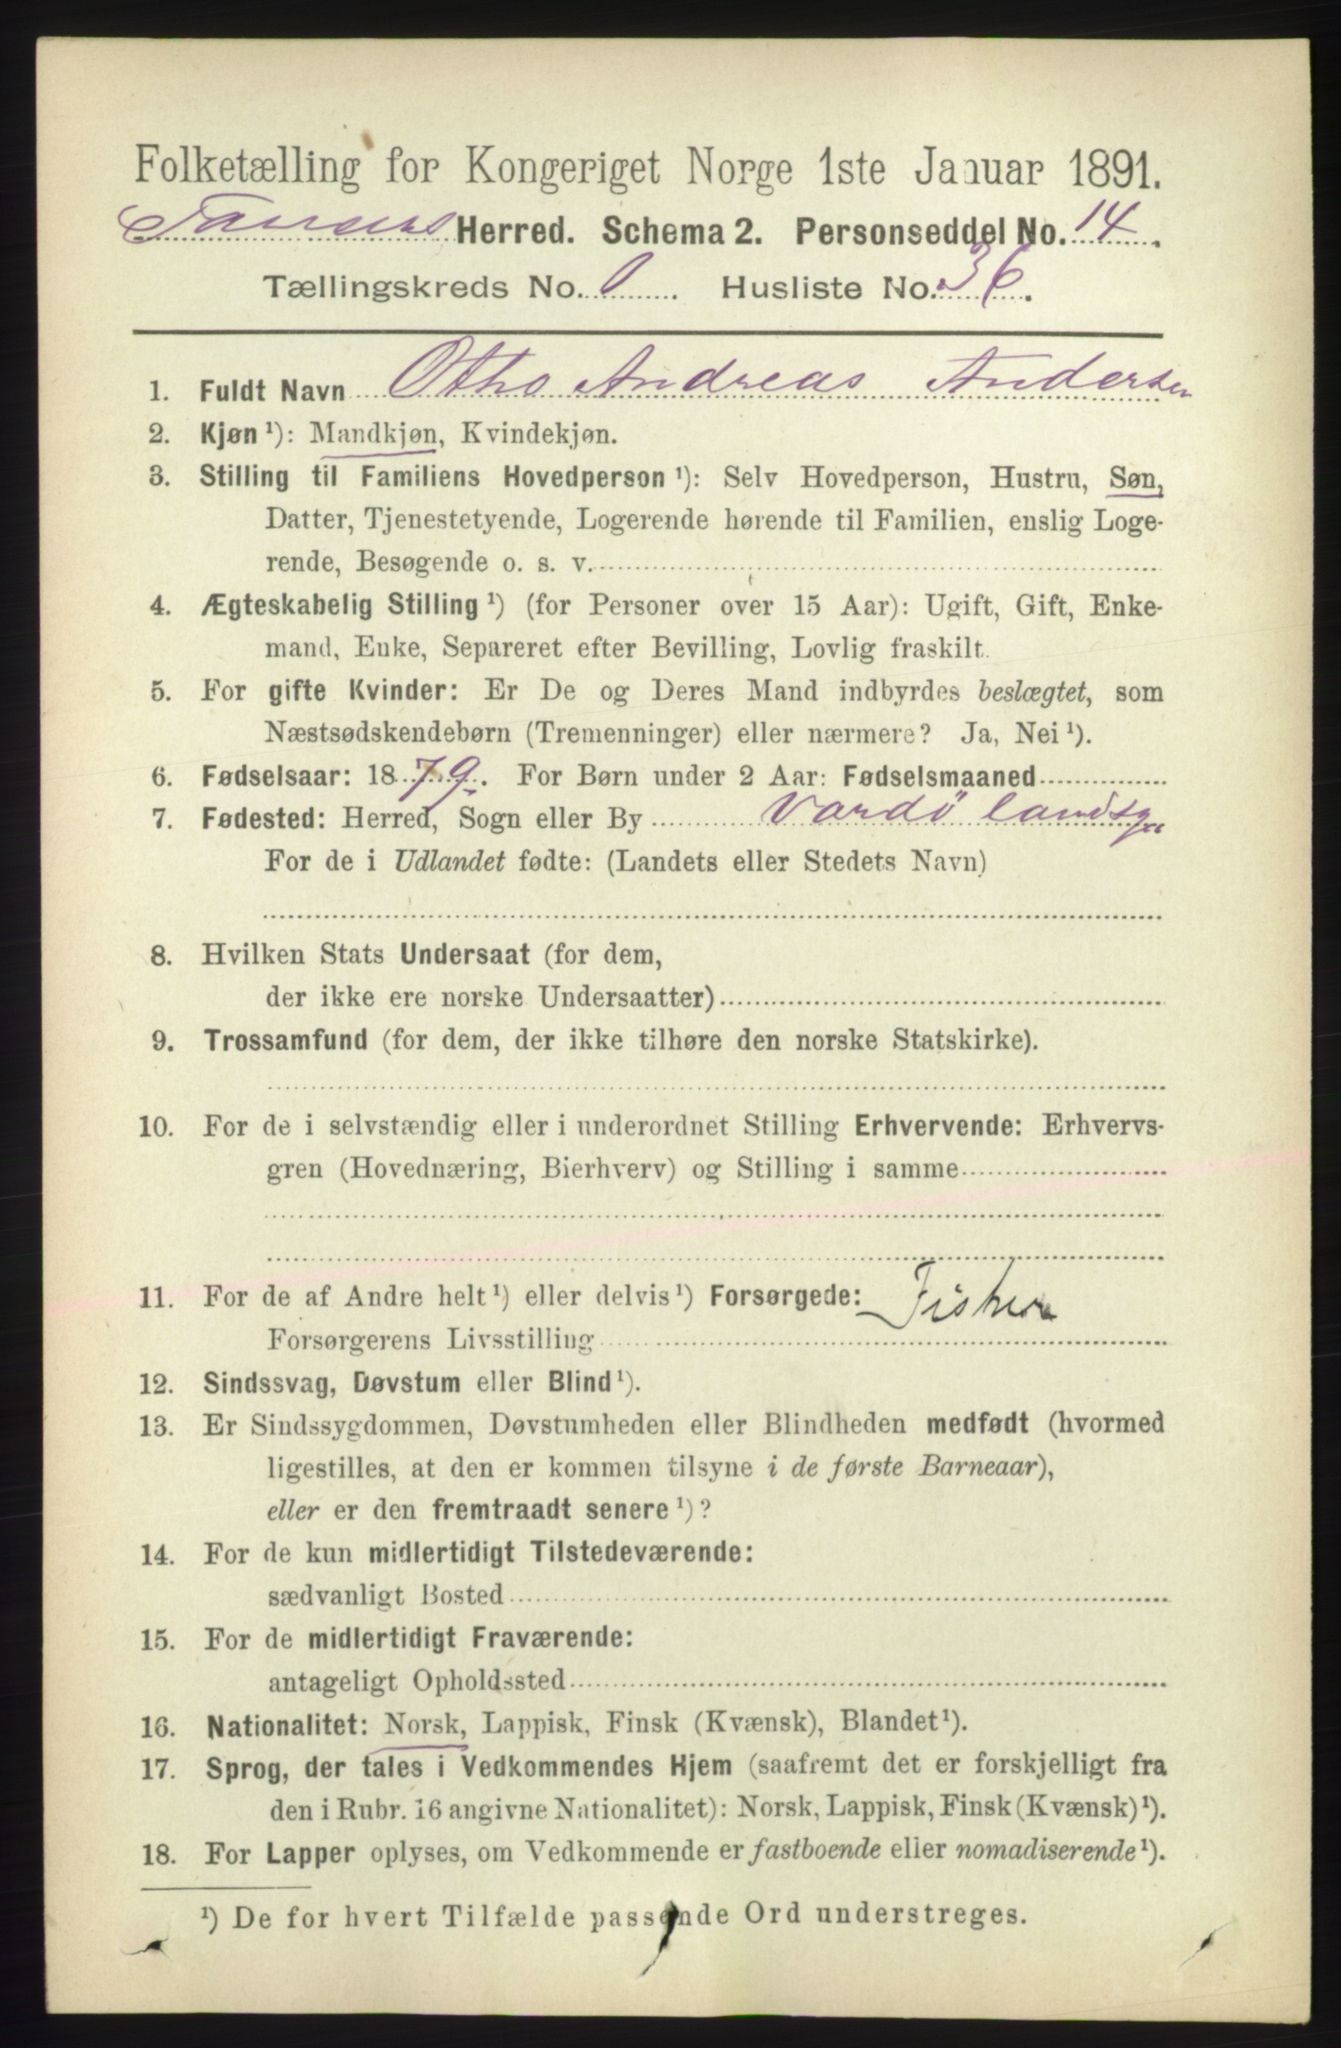 Folketælling for Kongeriget Norge 1ste Januar 1891.
Tanens Herred. Schema 2. Personseddel No. 14.
Tællingskreds No. 1. Husliste No. 36.
1. Fuldt Navn Otho Andreas Andersen
2. Kjøn ¹): Mandkjøn, Kvindekjøn.
3. Stilling til Familiens Hovedperson ¹): Selv Hovedperson, Hustru, Søn,
Datter, Tjenestetyende, Logerende hørende til Familien, enslig Loge-
rende, Besøgende o. s. v.
4. Ægteskabelig Stilling ¹) (for Personer over 15 Aar): Ugift, Gift, Enke-
mand, Enke, Separeret efter Bevilling, Lovlig fraskilt.
5. For gifte Kvinder: Er De og Deres Mand indbyrdes beslægtet, som
Næstsødskendebørn (Tremenninger) eller nærmere? Ja, Nei ¹).
6. Fødselsaar: 1879. For Børn under 2 Aar: Fødselsmaaned
7. Fødested: Herred, Sogn eller By Vardö landsgn
For de i Udlandet fødte: (Landets eller Stedets Navn)
8. Hvilken Stats Undersaat (for dem,
der ikke ere norske Undersaatter)
9. Trossamfund (for dem, der ikke tilhøre den norske Statskirke).
10. For de i selvstændig eller i underordnet Stilling Erhvervende: Erhvervs-
gren (Hovednæring, Bierhverv) og Stilling i samme
11. For de af Andre helt ¹) eller delvis ¹) Forsørgede: Fisker
Forsørgerens Livsstilling
12. Sindssvag, Døvstum eller Blind ¹).
13. Er Sindssygdommen, Døvstumheden eller Blindheden medfødt (hvormed
ligestilles, at den er kommen tilsyne i de første Barneaar),
eller er den fremtraadt senere ¹)?
14. For de kun midlertidigt Tilstedeværende:
sædvanligt Bosted
15. For de midlertidigt Fraværende:
antageligt Opholdssted
16. Nationalitet: Norsk, Lappisk, Finsk (Kvænsk), Blandet ¹).
17. Sprog, der tales i Vedkommendes Hjem (saafremt det er forskjelligt fra
den i Rubr. 16 angivne Nationalitet): Norsk, Lappisk, Finsk (Kvænsk) ¹).
18. For Lapper oplyses, om Vedkommende er fastboende eller nomadiserende ¹).
¹) De for hvert Tilfælde passende Ord understreges.